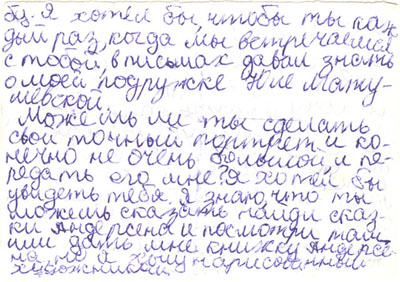 бя. Я хотел бы, чтобы ты каж
дый раз, когда мы встречаемся
с тобой, в письмах давал знать
о моей подружке Юле Мату-
шевской.
Можешь ли ты сделать
свой точный портрет и ко-
нечно не очень большой и пе-
редать его мне? Я хотел бы
увидеть тебя. Я знаю, что ты
можешь сказать найди сказ-
ки Андерсена и посмотри там
или дать мне книжку Андерсе-
на, но я хочу нарисованный
художником